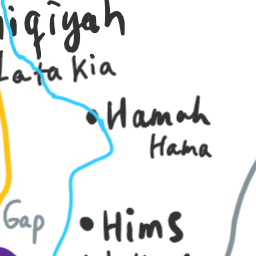 iqīyah
Latakia
Hamah
Hama
Gap
Hims